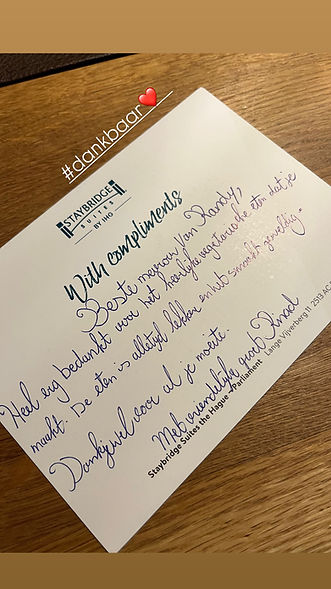 #dankbaar❤️
STAYBRIDGE
SUITES
BY IHG
With compliments
Beste mevrouw Van Randy,
Heel erg bedankt voor het heerlijke vegetarische eten dat je
maakt. De eten is alletijd lekker en het smaakt geweldig.
Dankjewel voor al je moeite.
Met vriendelijke groet
Staybridge Suites the Hague - Parliament Lange Vijverberg 11 2513 AC